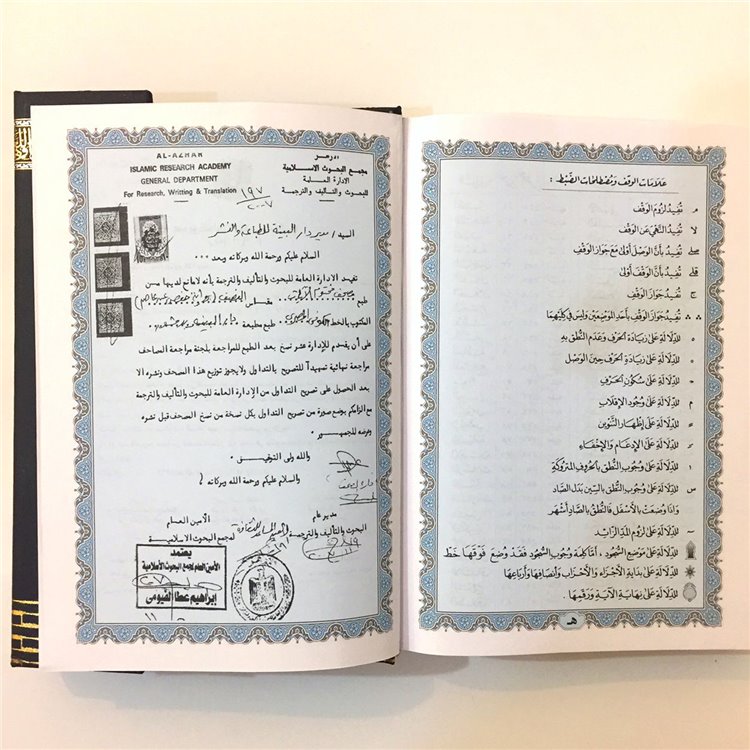 AL-AZHAR
ISLAMIC RESEARCH ACADEMY
GENERAL DEPARTMENT
For Research, Writting & Translation
الأزهر
مجمع البحوث الاسلامية
الادارة العامة
للبحوث والتأليف والترجمة
١٩٧
٢٠٠٧
السيد / مدير دار البينة للطباعة والنشر
السلام عليكم ورحمة الله وبركاته وبعد ...
تفيد الادارة العامة للبحوث والتأليف والترجمة بأنه لامانع لديها من
طبع مقاس
المكتوب بالخط طبع مطبعة
على أن يقدم للإدارة عشر نسخ بعد الطبع للمراجعة بلجنة مراجعة المصاحف
مراجعة نهائية تمهيداً للتصريح بالتداول ولايجوز توزيع هذا المصحف ونشره الا
بعد الحصول على تصريح التداول من الإدارة العامة للبحوث والتأليف والترجمة
مع الزامكم بوضع صورة من تصريح التداول بكل نسخة من نسخ المصحف قبل نشره
وعرضه للجمهــير .
والله ولى التوفيــق .
والسلام عليكم ورحمة الله وبركاته ؛
مدير عام
البحوث والتأليف والترجمة
الأمين العـام
لمجمع البحوث الاسلامية
يعتمد
الأمين العام لمجمع البحوث الأسلامية
إبراهيم عطا الفيومى
عَلَامَاتُ الوَقْفِ وَمُصْطَلَحَاتُ الضَّبْطِ :
مـ تُفِيدُ لُزُومَ الوَقْفِ
لا تُفِيدُ النَّهْيَ عَنِ الوَقْفِ
صلے تُفِيدُ بِأَنَّ الوَصْلَ أَوْلَى مَعَ جَوَازِ الوَقْفِ
قلے تُفِيدُ بِأَنَّ الوَقْفَ أَوْلَى
ج تُفِيدُ جَوَازَ الوَقْفِ
∴ ∴ تُفِيدُ جَوَازَ الوَقْفِ بِأَحَدِ المَوْضِعَيْنِ وَلَيْسَ فِي كِلَيْهِمَا
للدِّلَالَةِ عَلَى زِيَادَةِ الحَرْفِ وَعَدَمِ النُّطْقِ بِهِ
للدِّلَالَةِ عَلَى زِيَادَةِ الحَرْفِ حِينَ الوَصْلِ
للدِّلَالَةِ عَلَى سُكُونِ الحَرْفِ
م للدِّلَالَةِ عَلَى وُجُودِ الإِقْلَابِ
للدِّلَالَةِ عَلَى إِظْهَارِ التَّنْوِينِ
للدِّلَالَةِ عَلَى الإِدْغَامِ وَالإِخْفَاءِ
للدِّلَالَةِ عَلَى وُجُوبِ النُّطْقِ بِالحُرُوفِ المَتْرُوكَةِ
س للدِّلَالَةِ عَلَى وُجُوبِ النُّطْقِ بِالسِّينِ بَدَلَ الصَّادِ
وَإِذَا وُضِعَتْ بِالأَسْفَلِ فَالنُّطْقُ بِالصَّادِ أَشْهَر
~ للدِّلَالَةِ عَلَى لُزُومِ المَدِّ الزَّائِدِ
للدِّلَالَةِ عَلَى مَوْضِعِ السُّجُودِ ، أَمَّا كَلِمَةُ وُجُوبِ السُّجُودِ فَقَدْ وُضِعَ فَوْقَهَا خَط
للدِّلَالَةِ عَلَى بِدَايَةِ الأَجْزَاءِ وَالأَحْزَابِ وَأَنْصَافِهَا وَأَرْبَاعِهَا
للدِّلَالَةِ عَلَى نِهَايَةِ الآيَةِ وَرَقْمِهَا .
هـ